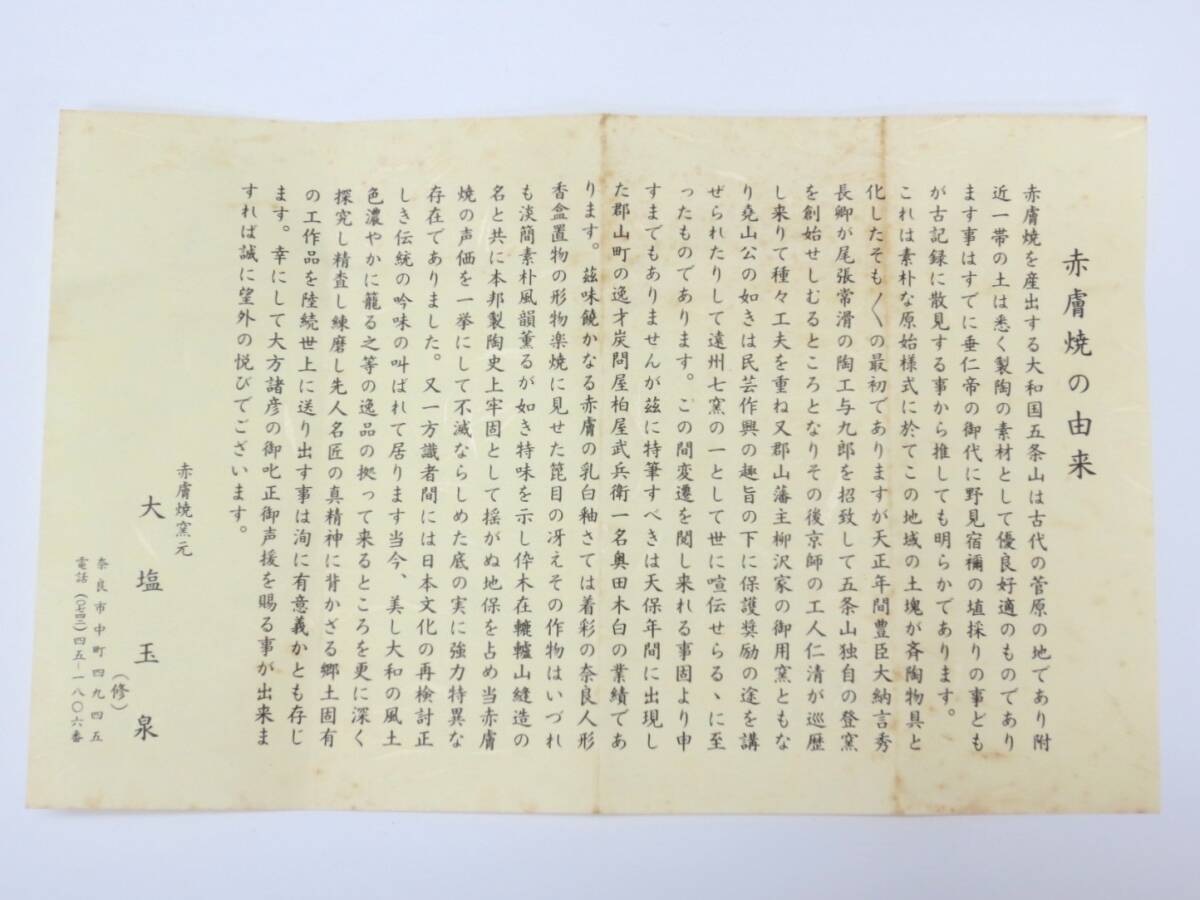 赤膚焼の由来
赤膚焼を産出する大和国五条山は古代の菅原の地であり附
近一帯の土は悉く製陶の素材として優良好適のものであり
ます事はすでに垂仁帝の御代に野見宿禰の埴採りの事ども
が古記録に散見する事から推しても明らかであります。
これは素朴な原始様式に於てこの地域の土塊が斉陶物具と
化したそも〱の最初でありますが天正年間豊臣大納言秀
長卿が尾張常滑の陶工与九郎を招致して五条山独自の登窯
を創始せしむるところとなりその後京師の工人仁清が巡歴
し来りて種々工夫を重ね又郡山藩主柳沢家の御用窯ともな
り尭山公の如きは民芸作興の趣旨の下に保護奨励の途を講
ぜられたりして遠州七窯の一として世に喧伝せらるゝに至
ったものであります。この間変遷を閲し来れる事固より申
すまでもありませんが玆に特筆すべきは天保年間に出現し
た郡山町の逸才炭問屋柏屋武兵衛一名奥田木白の業績であ
ります。玆味饒かなる赤膚の乳白釉さては着彩の奈良人形
香盒置物の形物楽焼に見せた箆目の冴えその作物はいづれ
も淡簡素朴風韻薫るが如き特味を示し伜木在轆轤山縫造の
名と共に本邦製陶史上牢固として揺がぬ地保を占め当赤膚
焼の声価を一挙にして不滅ならしめた底の実に強力特異な
存在でありました。又一方識者間には日本文化の再検討正
しき伝統の吟味の叫ばれて居ります当今、美し大和の風土
色濃やかに籠る之等の逸品の拠って来るところを更に深く
探究し精査し練磨し先人名匠の真精神に背かざる郷土固有
の工作品を陸続世上に送り出す事は洵に有意義かとも存じ
ます。幸にして大方諸彦の御叱正御声援を賜る事が出来ま
すれば誠に望外の悦びでございます。
赤膚焼窯元
大塩玉泉
(修)
奈良市中町四九四五
電話(〇七四二)四五-一八〇六番